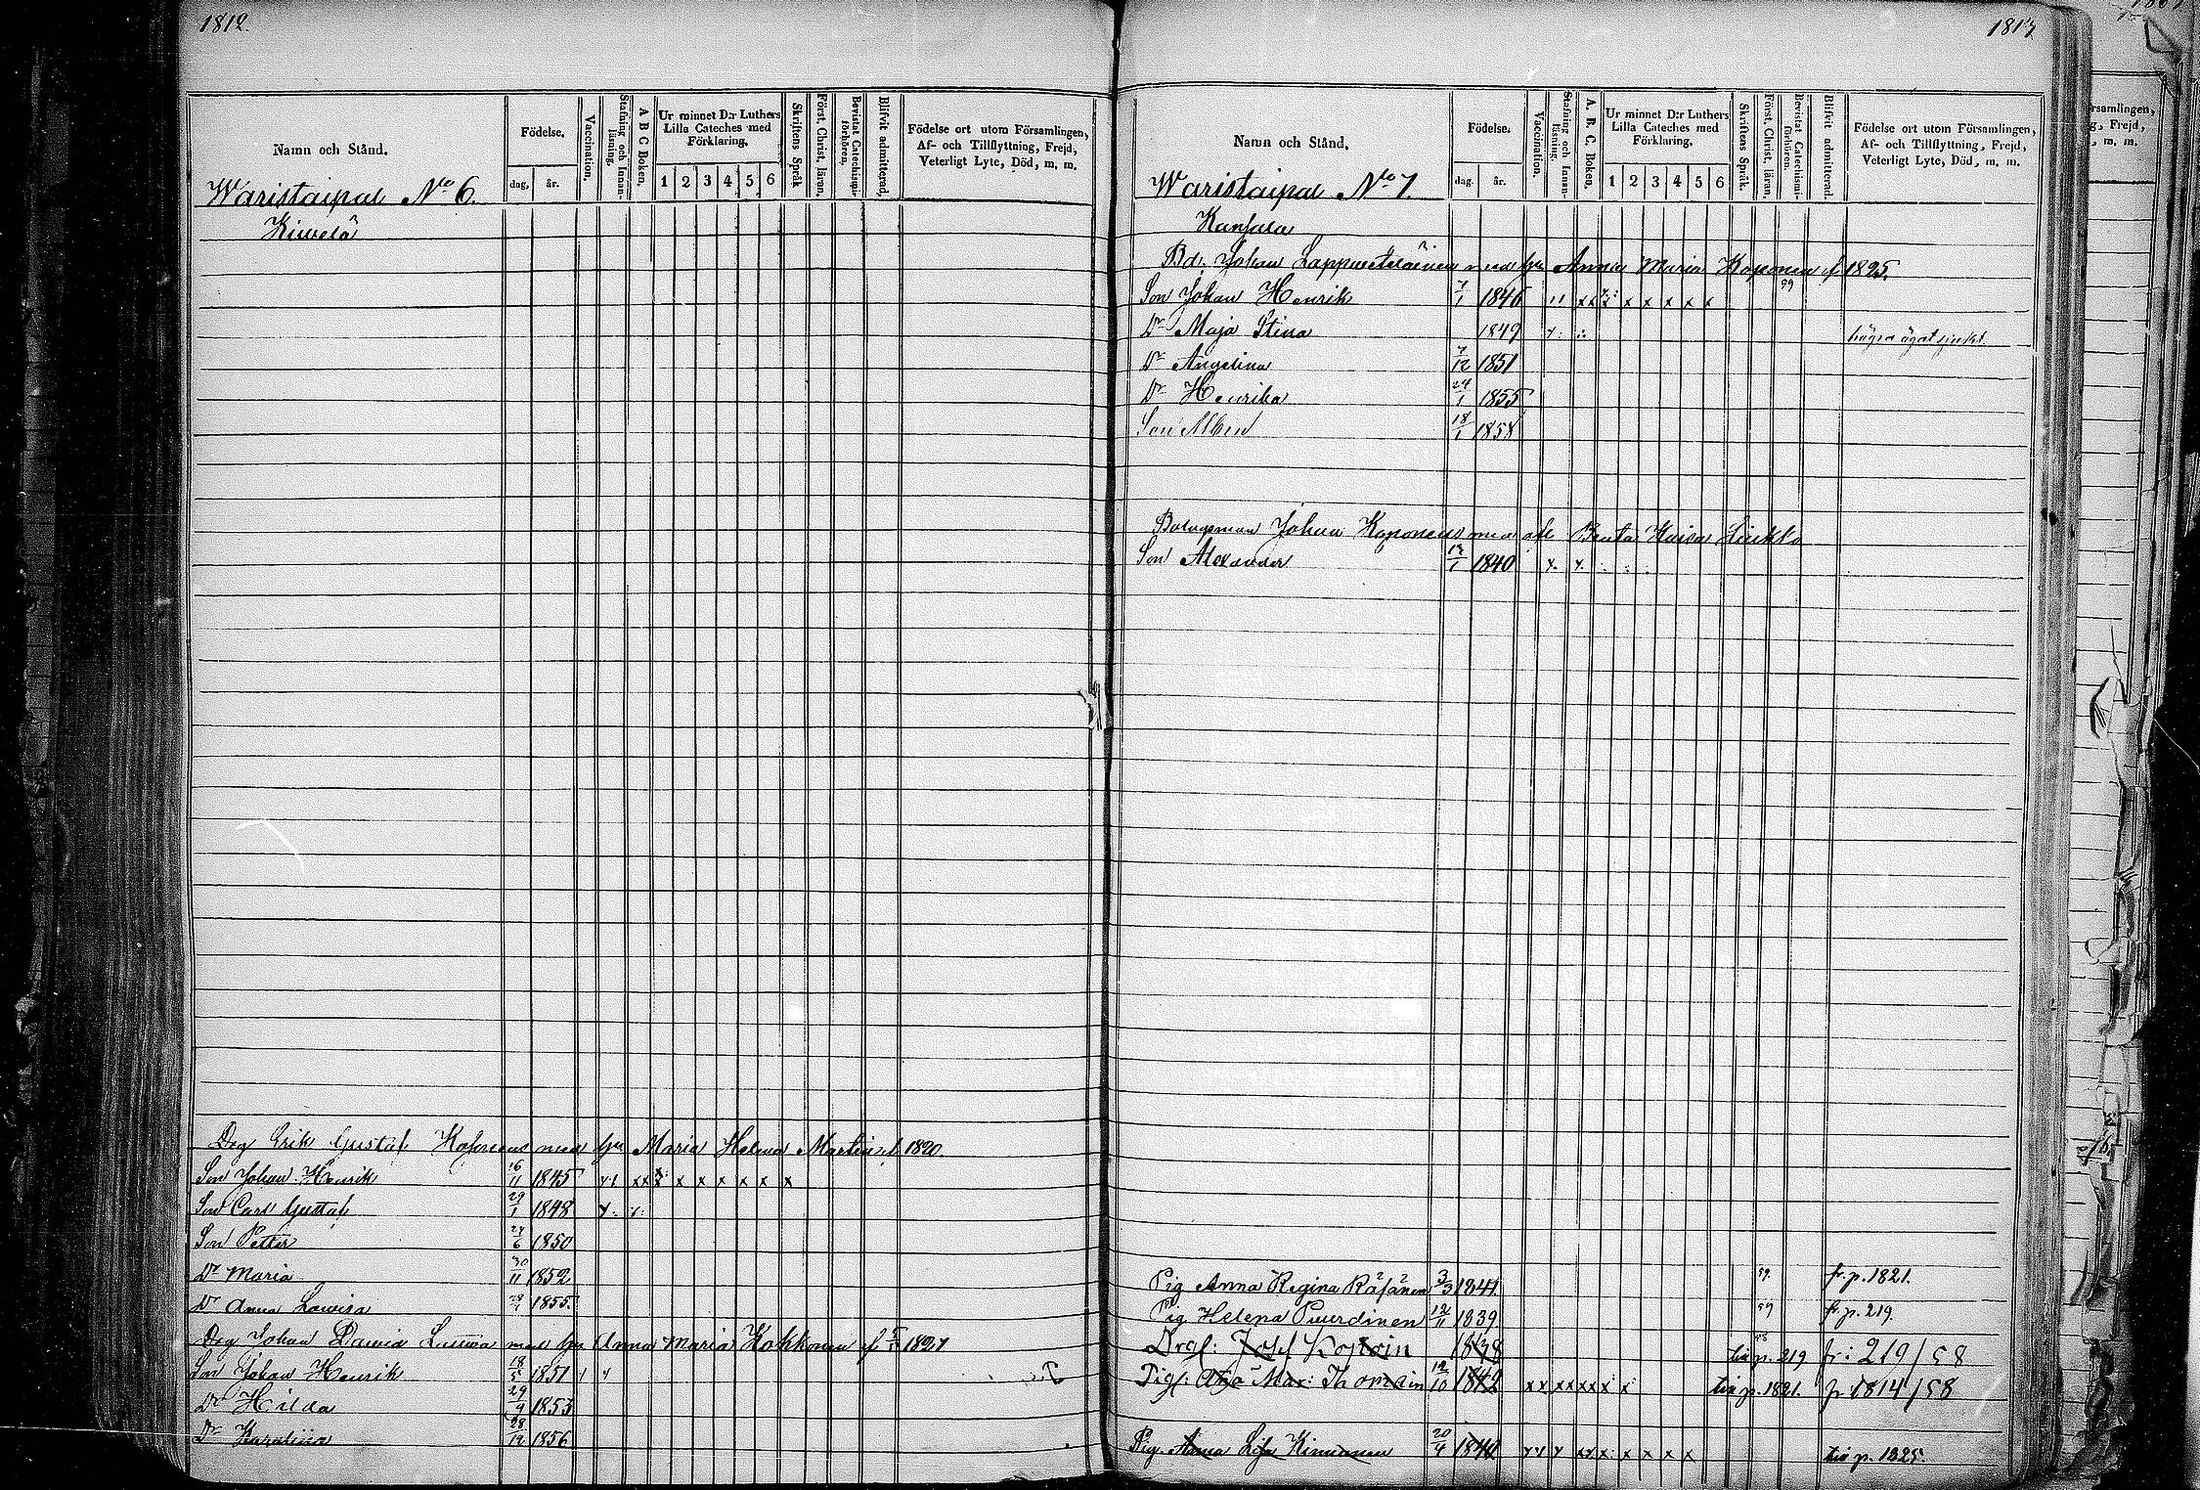 1812.
Namn och Stånd.
Födelse.
dag.
år.
Vaccination.
Stafning och Innan-
läsning.
A B C Boken.
Ur minnet D:r Luthers
Lilla Cateches med
Förklaring.
1 2 3 4 5 6
Skriftens Språk
Först. Christ. läran.
Bevistat Catechismi-
förhören.
Blifvit admitterad.
Födelse ort utom Församlingen,
Af- och Tillflyttning, Frejd,
Veterligt Lyte, Död, m. m.
Waristaipal No 6.
Kiwelä
Drg Erik Gustaf Koponens med hu Maria Helena Martin f. 1820
Son Johan Henrik 16/11 1845
Son Carl Gustaf 29/1 1848
Son Petter 24/6 1850
Dr Maria 30/11 1852
Dr Anna Lowisa 1855.
Drg Johan med hu Anna Maria Kokkonen f 1827
Son Johan Henrik 18/5 1851
Dr Hilda 29/9 1853
Dr Karolina 28/12 1856
1813
Namn och Stånd.
Födelse.
dag.
år.
Vaccination.
Stafning och Innan-
läsning.
A. B. C. Boken.
Ur minnet D:r Luthers
Lilla Cateches med
Förklaring.
1 2 3 4 5 6
Skriftens Språk.
Först. Christ. läran.
Bevistat Catechismi-
förhören.
Blifvit admitterad.
Födelse ort utom Församlingen,
Af- och Tillflyttning, Frejd,
Veterligt Lyte, Död, m. m.
Waristaipal No 7.
Kansala
Bd. Johan Lappveteläinen med hu Anna Maria Koponen f 1825.
Son Johan Henrik 7/1 1846 x x x x x
Dr Maja Stina 1849 högra ögat
Dr Angelina 7/12 1851
Dr Henrika 24/1 1855
Son Albin 18/1 1858
Bolagsman Johan Koponens med Kaisa
Son Alexander 1840
Pig Anna Regina Räsänen 3/3 1841. 59. fr. p. 1821.
Pig Helena Puurdinen 12/11 1839 59 fr. p. 219.
Drgl: Josef Kopoin 1838 58 till p. 219 fr: 219/58
Pigl: Mar: Thomain 12/10 1842 till p. 1821. fr 1814/58
Pig. Anna Lisa Kinnunen 20/4 1840 x x x x till p. 1825.